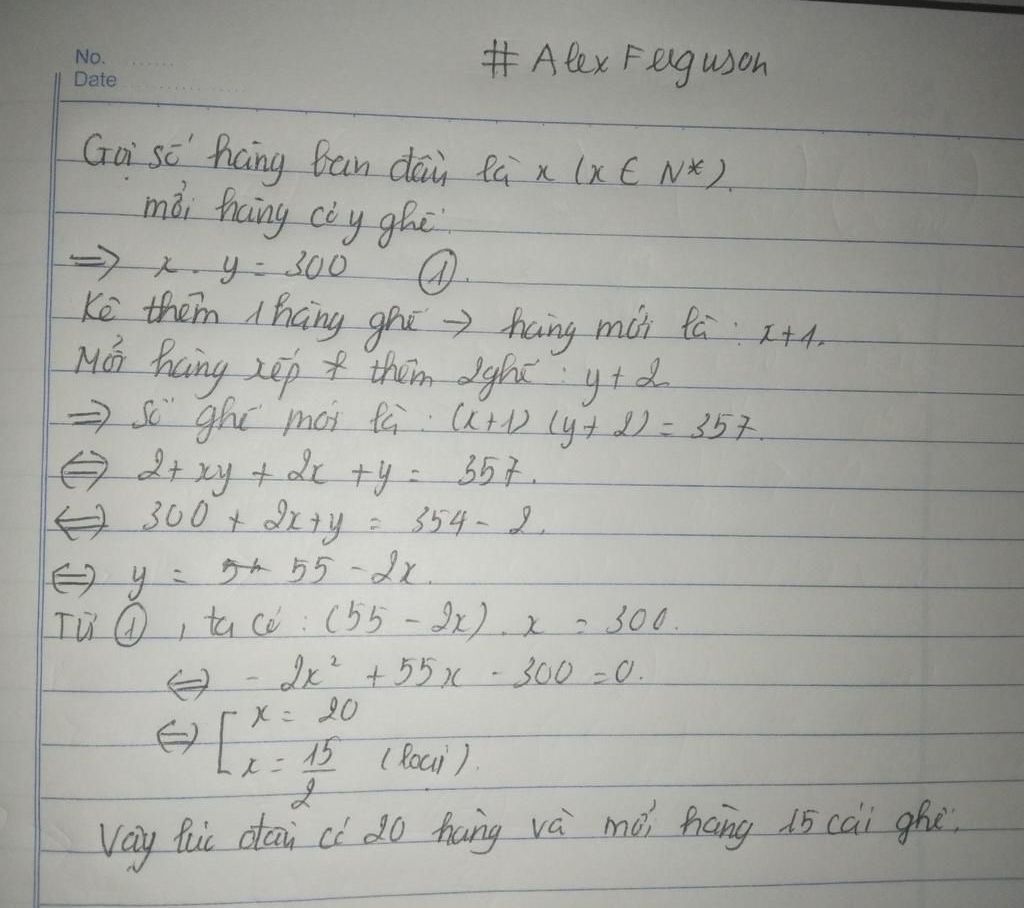 No. ......
# Alex Ferguson
Date ..................
Gọi số hàng ban đầu là x (x ∈ N*).
mỗi hàng có y ghế.
=> x . y = 300 ①.
Kê thêm 1 hàng ghế → hàng mới là : x+1.
Mỗi hàng xếp thêm 2 ghế : y + 2
=> Số ghế mới là : (x+1) (y+ 2) = 357.
<=> 2 + xy + 2x + y = 357.
<=> 300 + 2x + y = 354 - 2.
<=> y = 55 - 2x.
Từ ①, ta có : (55 - 2x) . x = 300.
<=> - 2x² + 55x - 300 = 0.
<=> [ x = 20
x = 15/2 (loại).
Vậy lúc đầu có 20 hàng và mỗi hàng 15 cái ghế.